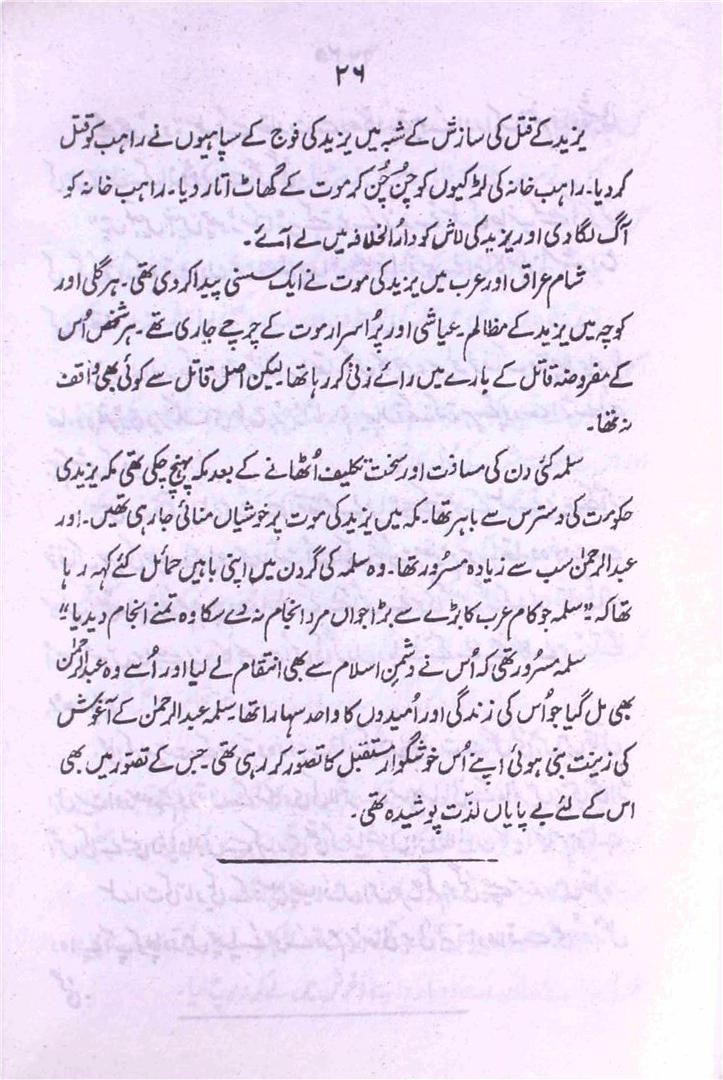 ۲۶
یزید کے قتل کی سازش کے شبہ میں یزید کی فوج کے سپاہیوں نے راہب کو قتل
کر دیا۔ راہب خانہ کی لڑکیوں کو چُن چُن کر موت کے گھاٹ اُتار دیا۔ راہب خانہ کو
آگ لگا دی اور یزید کی لاش کو دارُالخلافہ میں لے آئے۔
شام عراق اور عرب میں یزید کی موت نے ایک سنسنی پیدا کر دی تھی۔ ہر گلی اور
کوچہ میں یزید کے مظالم۔ عیاشی اور پُر اسرار موت کے چرچے جاری تھے۔ ہر شخص اُس
کے مفروضہ قاتل کے بارے میں رائے زنی کر رہا تھا لیکن اصل قاتل سے کوئی بھی واقف
نہ تھا۔
سلمہ کئی دن کی مسافت اور سخت تکلیف اُٹھانے کے بعد مکہ پہنچ چکی تھی مکہ یزیدی
حکومت کی دسترس سے باہر تھا۔ مکہ میں یزید کی موت پر خوشیاں منائی جا رہی تھیں۔ اور
عبدالرحمٰن سب سے زیادہ مسرُور تھا۔ وہ سلمہ کی گردن میں اپنی باہیں حمائل کئے کہہ رہا
تھا کہ "سلمہ جو کام عرب کا بڑے سے بڑا جواں مرد انجام نہ دے سکا وہ تمنے انجام دیدیا"
سلمہ مسرُور تھی کہ اُس نے دشمنِ اسلام سے بھی انتقام لے لیا اور اُسے وہ عبدالرحمٰن
بھی مل گیا جو اُس کی زندگی اور اُمیدوں کا واحد سہارا تھا۔ سلمہ عبدالرحمٰن کے آغوش
کی زینت بنی ہوئی اپنے اُس خوشگوار مستقبل کا تصوّر کر رہی تھی۔ جس کے تصوّر میں بھی
اس کے لئے بے پایاں لذّت پوشیدہ تھی۔